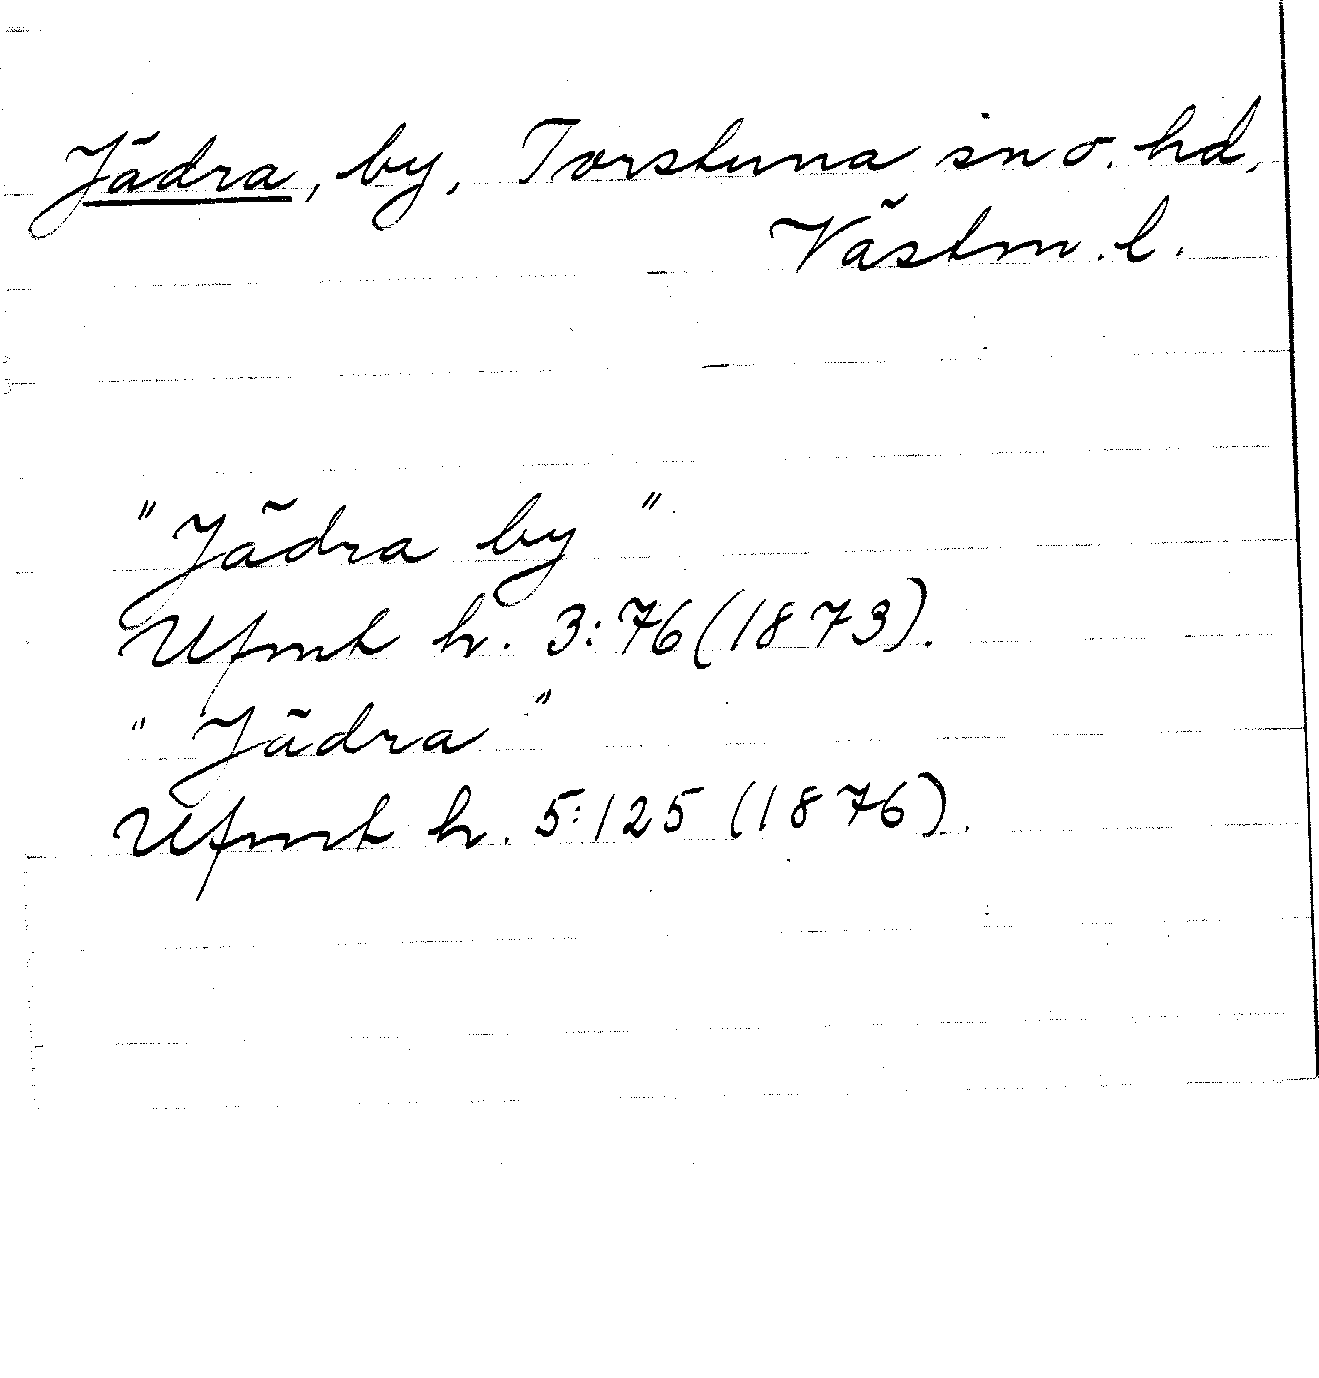 Jädra, by, Torstuna sn o. hd,
Västm. l.
"Jädra by"
Ufmt h. 3:76 (1873).
"Jädra"
Ufmt h. 5:125 (1876).